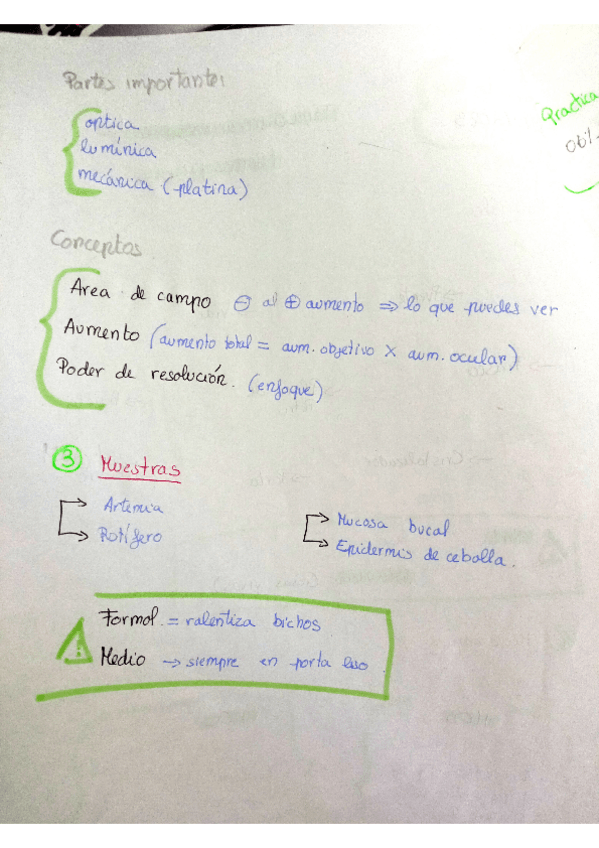 Partes importantes
Practica
óptica
lumínica
mecánica (platina)
Conceptos
Area de campo ⊖ al ⊕ aumento ⇒ lo que puedes ver
Aumento (aumento total = aum. objetivo x aum. ocular)
Poder de resolución. (enfoque)
③ Muestras
→ Artemia
→ Rotífero
→ Mucosa bucal
→ Epidermis de cebolla.
⚠ Formol = ralentiza bichos
Medio → siempre en porta liso